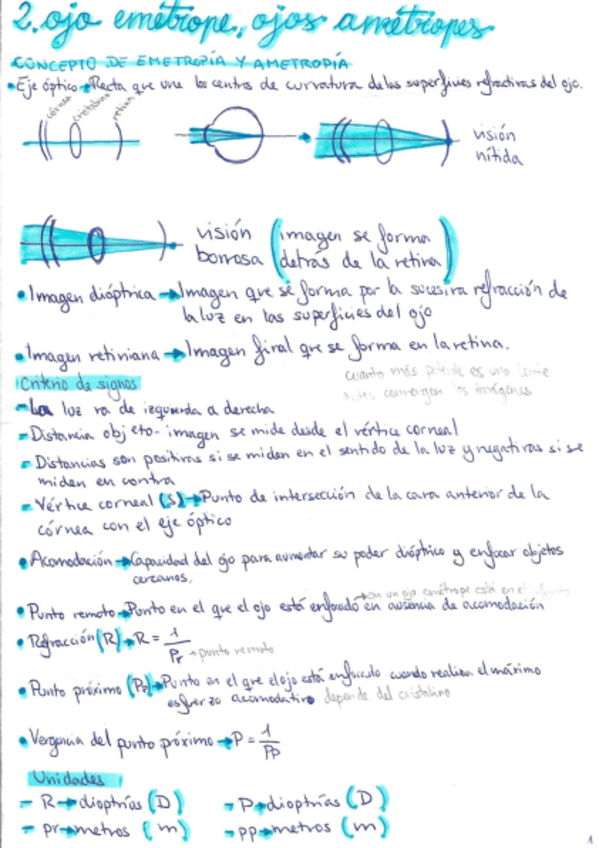 2. ojo emétrope, ojos amétropes
CONCEPTO DE EMETROPÍA Y AMETROPÍA
• Eje óptico → Recta que une los centros de curvatura de las superficies refractivas del ojo.
córnea cristalino retina
visión
nítida
visión (imagen se forma
borrosa detrás de la retina)
• Imagen dióptrica → Imagen que se forma por la sucesiva refracción de
la luz en las superficies del ojo
• Imagen retiniana → Imagen final que se forma en la retina.
cuanto más potente es una lente
antes convergen las imágenes
Criterio de signos
- La luz va de izquierda a derecha
- Distancia objeto-imagen se mide desde el vértice corneal
- Distancias son positivas si se miden en el sentido de la luz y negativas si se
miden en contra
- Vértice corneal (S) → Punto de intersección de la cara anterior de la
córnea con el eje óptico
• Acomodación → Capacidad del ojo para aumentar su poder dióptrico y enfocar objetos
cercanos.
→ en un ojo emétrope está en el
• Punto remoto → Punto en el que el ojo está enfocado en ausencia de acomodación
• Refracción (R) → R = 1/Pr → punto remoto
• Punto próximo (Pp) → Punto en el que el ojo está enfocado cuando realiza el máximo
esfuerzo acomodativo depende del cristalino
• Vergencia del punto próximo → P = 1/Pp
Unidades
- R → dioptrías (D) - P → dioptrías (D)
- pr → metros (m) - pp → metros (m)
1